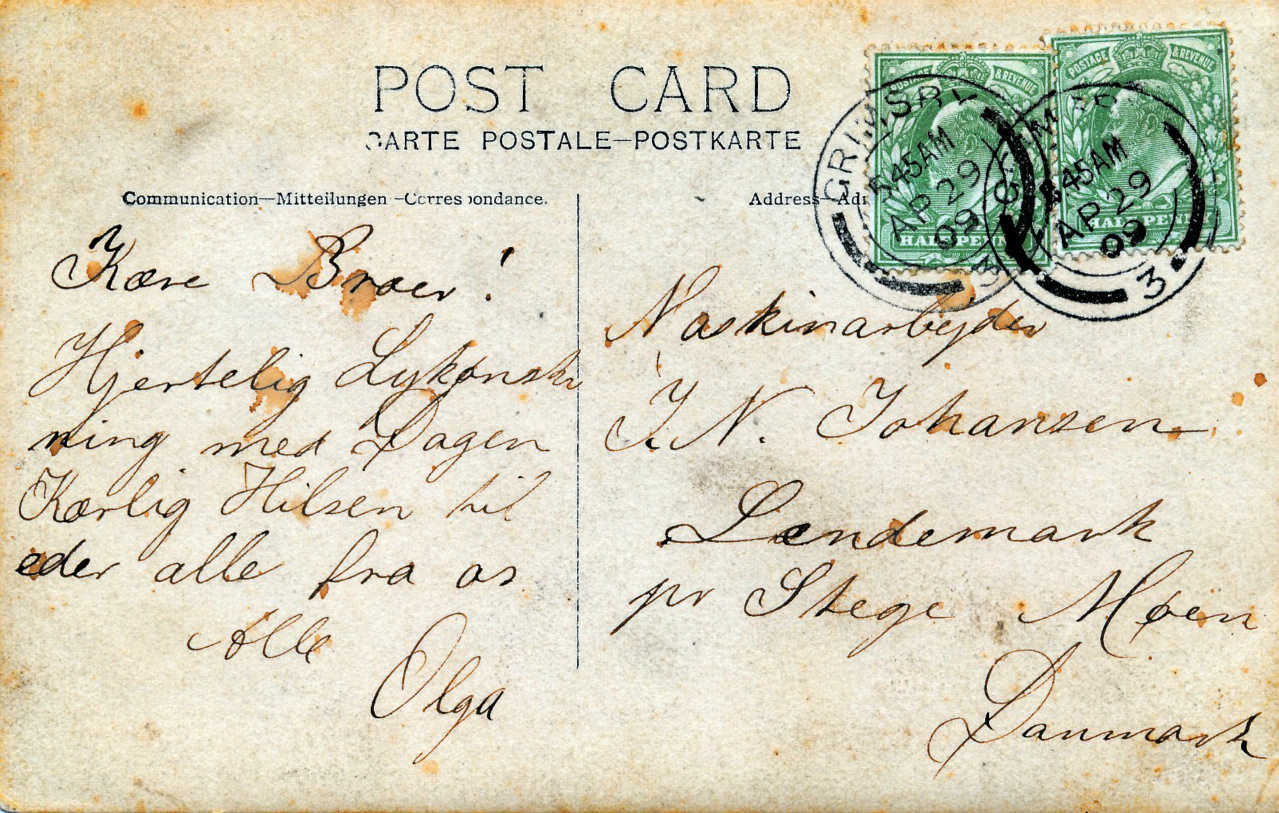 POST CARD
CARTE POSTALE—POSTKARTE
Communication—Mitteilungen—Correspondance.
Address—Ad
POSTAGE & REVENUE
HALFPENNY
POSTAGE & REVENUE
HALFPENNY
GRIMSBY
5 45AM
AP 29
09
3
GRIMSBY
5 45AM
AP 29
09
3
Kære Broer!
Hjertelig Lykønsk
ning med Dagen
Kærlig Hilsen til
eder alle fra os
Alle
Olga
Maskinarbejder
J. N. Johansen
Lendemark
pr Stege Møen
Danmark